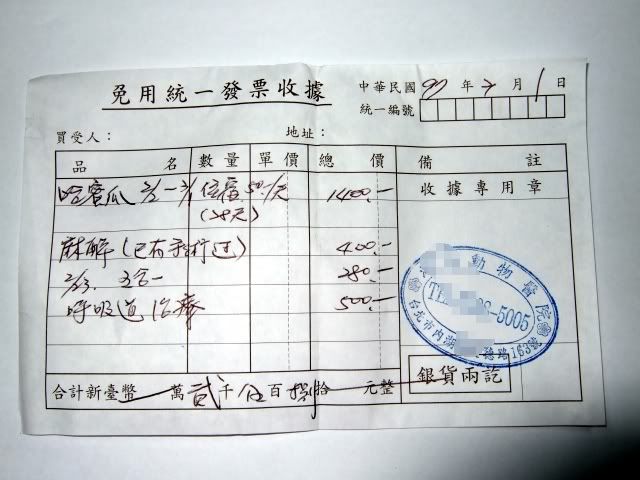 免用統一發票收據
中華民國97年3月1日
統一編號
買受人： 地址：
品名 數量 單價 總價 備註
哈蜜瓜 2/1-3/1 住宿 50.-/天 1400.-
(28天)
收據專用章
麻醉(已有刷行过) 400.-
2/23. 三合一 280.-
呼吸道治療 500.-
動物醫院
TEL 8-5005
台北市內湖 德路163號
銀貨兩訖
合計新臺幣 萬貳千伍百捌拾 元整